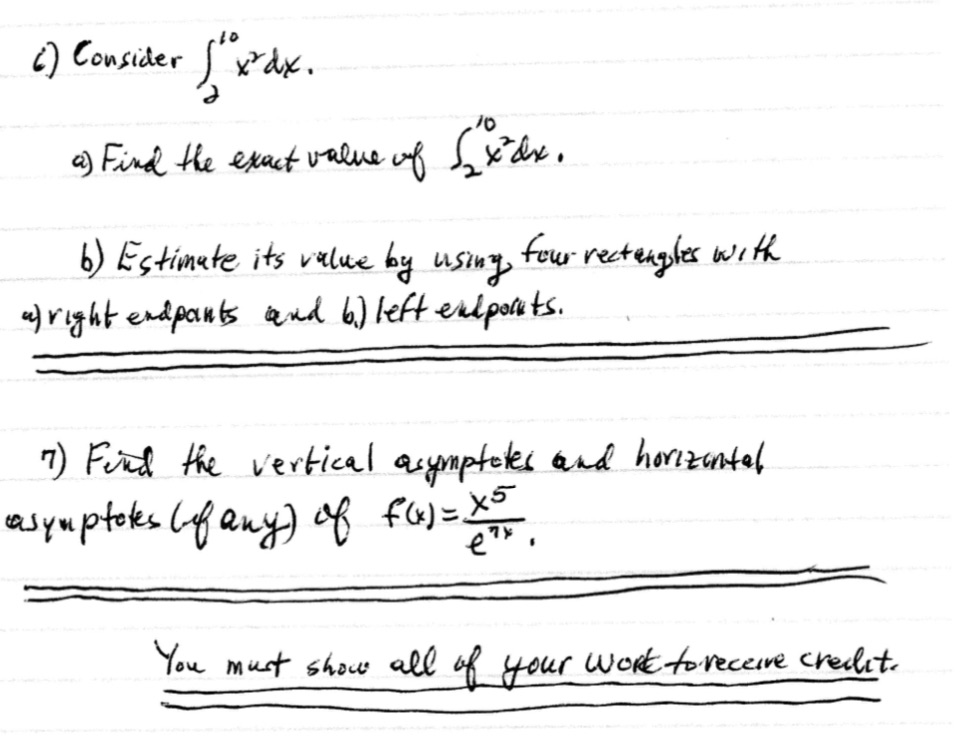 6) Consider ∫₂¹⁰ x² dx.
a) Find the exact value of ∫₂¹⁰ x² dx.
b) Estimate its value by using four rectangles with
a) right endpoints and b.) left endpoints.
7) Find the vertical asymptotes and horizontal
asymptotes (if any) of f(x) = x⁵/e⁷ˣ.
You must show all of your work to receive credit.